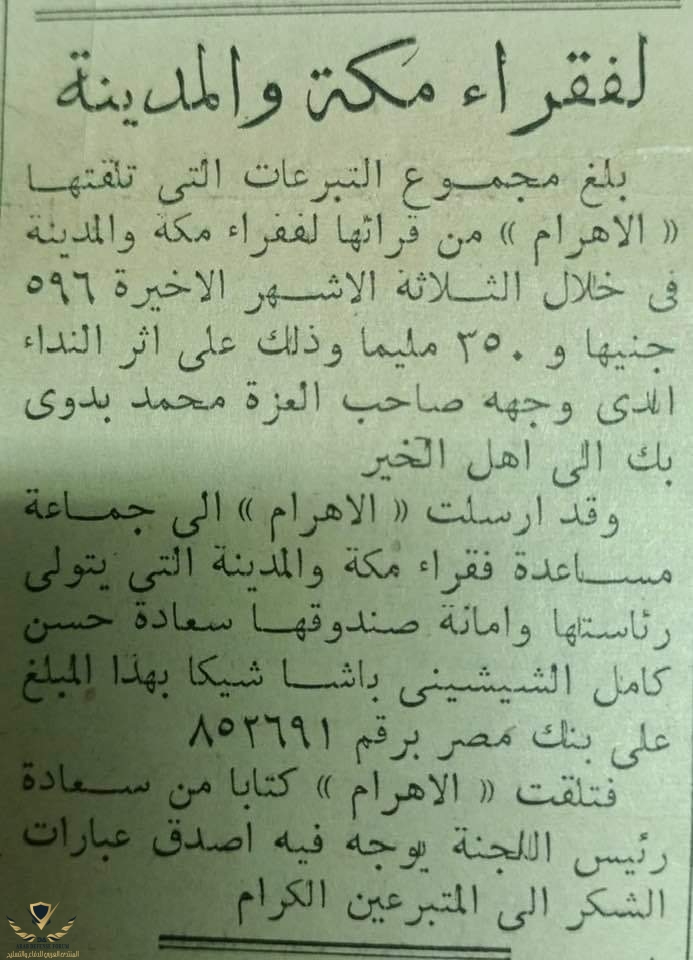 لفقراء مكة والمدينة
بلغ مجمـوع التبرعات التى تلقتهـا
« الاهرام » من قرائها لفقراء مكة والمدينة
فى خلال الثـلاثة الاشـهر الاخيرة ٥٩٦
جنيها و ٣٥٠ مليما وذلك على اثر النداء
الذى وجهه صاحب العزة محمد بدوى
بك الى اهل الخير
وقد ارسلت « الاهرام » الى جمـاعة
مسـاعدة فقراء مكة والمدينة التى يتولى
رئاستها وامانة صندوقهـا سعادة حسن
كامل الشيشينى باشـا شيكا بهذا المبلغ
على بنك مصر برقم ٨٥٢٦٩١
فتلقت « الاهرام » كتابا من سـعادة
رئيس اللجنة يوجه فيه اصدق عبارات
الشكر الى المتبرعين الكرام
ARAB DEFENSE FORUM
المنتدى العربي للدفاع والتسليح